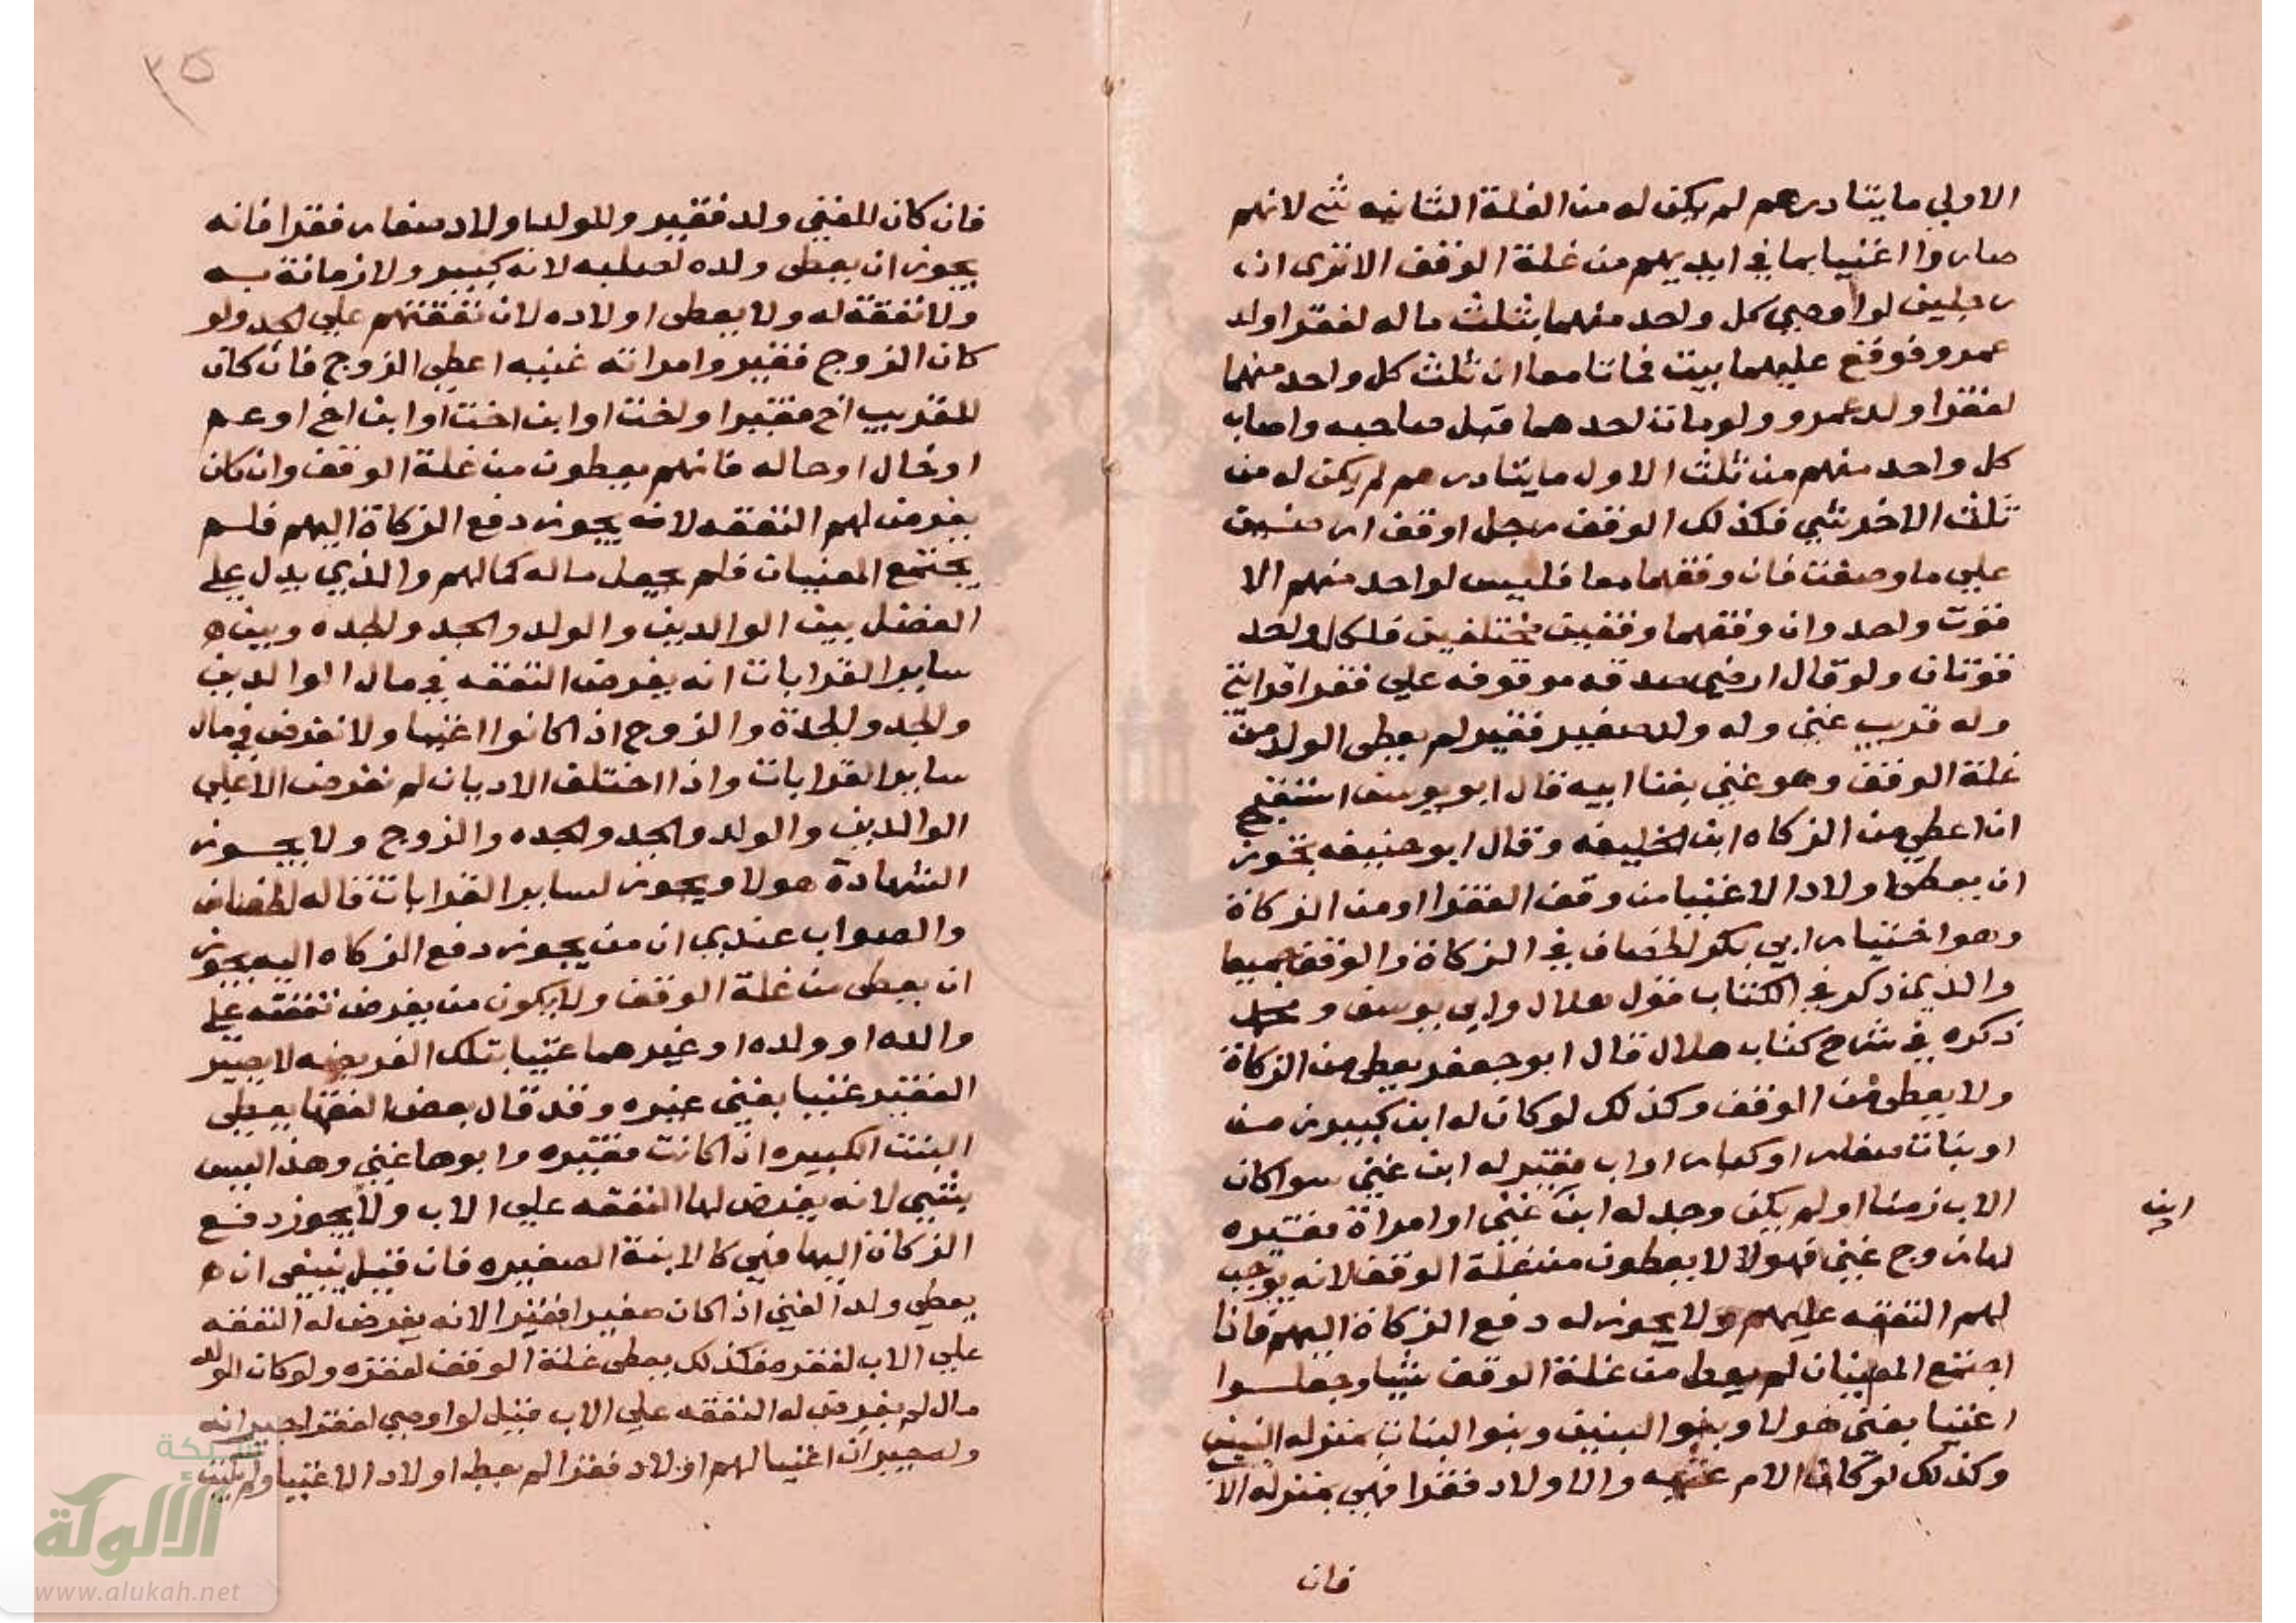 الاولي مايتا درهم لم يكن له من الغلة الثانيه شي لانهم
صاروا اغنيا بما في ايديهم من غلة الوقف الا ترى ان
رجلين لو اوصي كل واحد منهما بثلث ماله لفقرا ولد
عمرو فوقع عليهما بيت فماتا معا ان ثلث كل واحد منهما
لفقرا ولد عمرو ولو مات احدهما قبل صاحبه واصاب
كل واحد منهم من ثلث الاول مايتا درهم لم يكن له من
ثلث الاخر شي فكذلك الوقف رجل اوقف ارضين
علي ما وصفت فان وقفهما معا فليس لواحد منهم الا
قوت واحد وان وقفهما وقفين مختلفين فلكل واحد
قوتان ولو قال ارضي صدقه موقوفه علي فقرا قرابتي
وله قريب غني وله ولد صغير فقير لم يعطى الولد من
غلة الوقف وهو غني بغنا ابيه قال ابو يوسف استقبح
ان اعطي من الزكاه ابن الخليفه وقال ابو حنيفه يجوز
ان يعطى اولاد الاغنيا من وقف الفقرا او من الزكاة
وهو اختيار ابي بكر الخصاف في الزكاة والوقف جميعا
والذي ذكر في الكتاب قول هلال وابي يوسف ومحمد
ذكره في شرح كتاب هلال قال ابو جعفر يعطى من الزكاة
ولا يعطى من الوقف وكذلك لو كان له ابن كبير زمن
او بنات صغار او كبار او اب فقير له ابن غني سوا كان
الاب زمنا او لم يكن وجد له ابن غني او امراة فقيره
ابن
لها زوج غني فهولا لا يعطون من غلة الوقف لانه يوجب
لهم النفقه عليهم ولا يجوز له دفع الزكاة اليهم فاذا
اجتمع المعنيان لم يعط من غلة الوقف شيا وجعلوا
اغنيا بغنى هولا وبنو البنين وبنو البنات بمنزله البنين
وكذلك لو كان الام غنيه والاولاد فقرا فهي بمنزله الا
فان
٣٥
فان كان للغني ولد فقير وللولد اولاد صغار فقرا فانه
يجوز ان يعطى ولده لصلبه لانه كبير ولا زمانة به
ولا نفقة له ولا يعطى اولاده لان نفقتهم علي الجد ولو
كان الزوج فقير وامراته غنيه اعطي الزوج فان كان
للقريب اخ فقير او اخت او ابن اخت او ابن اخ او عم
او خال او خاله فانهم يعطون من غلة الوقف وان كان
يفرض لهم النفقه لانه يجوز دفع الزكاة اليهم فلم
يجتمع المعنيان فلم يجعل ماله كمالهم والذي يدل علي
الفضل بين الوالدين والولد والجد والجده وبين
ساير القرابات انه يفرض النفقه في مال الوالدين
والجد والجدة والزوج اذا كانوا اغنيا ولا تفرض في مال
ساير القرابات واذا اختلف الاديان لم تفرض الا علي
الوالدين والولد والجد والجده والزوج ولا يجوز
الشهادة هولا ويجوز لساير القرابات قاله الخصاف
والصواب عندي ان من يجوز دفع الزكاه اليه يجوز
ان يعطى من غلة الوقف ولا يكون من يفرض نفقته علي
والده او ولده او غيرهما غنيا بتلك الفريضه لا يصير
الفقير غنيا بغني غيره وقد قال بعض الفقها يعطى
البنت الكبيره اذا كانت فقيره وابوها غني وهذا ليس
بشي لانه يفرض لها النفقه علي الاب ولا يجوز دفع
الزكاة اليها فهي كالابنة الصغيره فان قيل ينبغي ان
يعطي ولد الغني اذا كان صغيرا فقيرا لانه يفرض له النفقه
علي الاب لفقره فكذلك يعطى غلة الوقف لفقره ولو كان للولد
مال لم يفرض له النفقه علي الاب قيل لو اوصي لفقرا جيرانه
وله جيران اغنيا لهم اولاد فقرا لم يعط اولاد الاغنيا ولم
شبكة
الألوكة
www.alukah.net